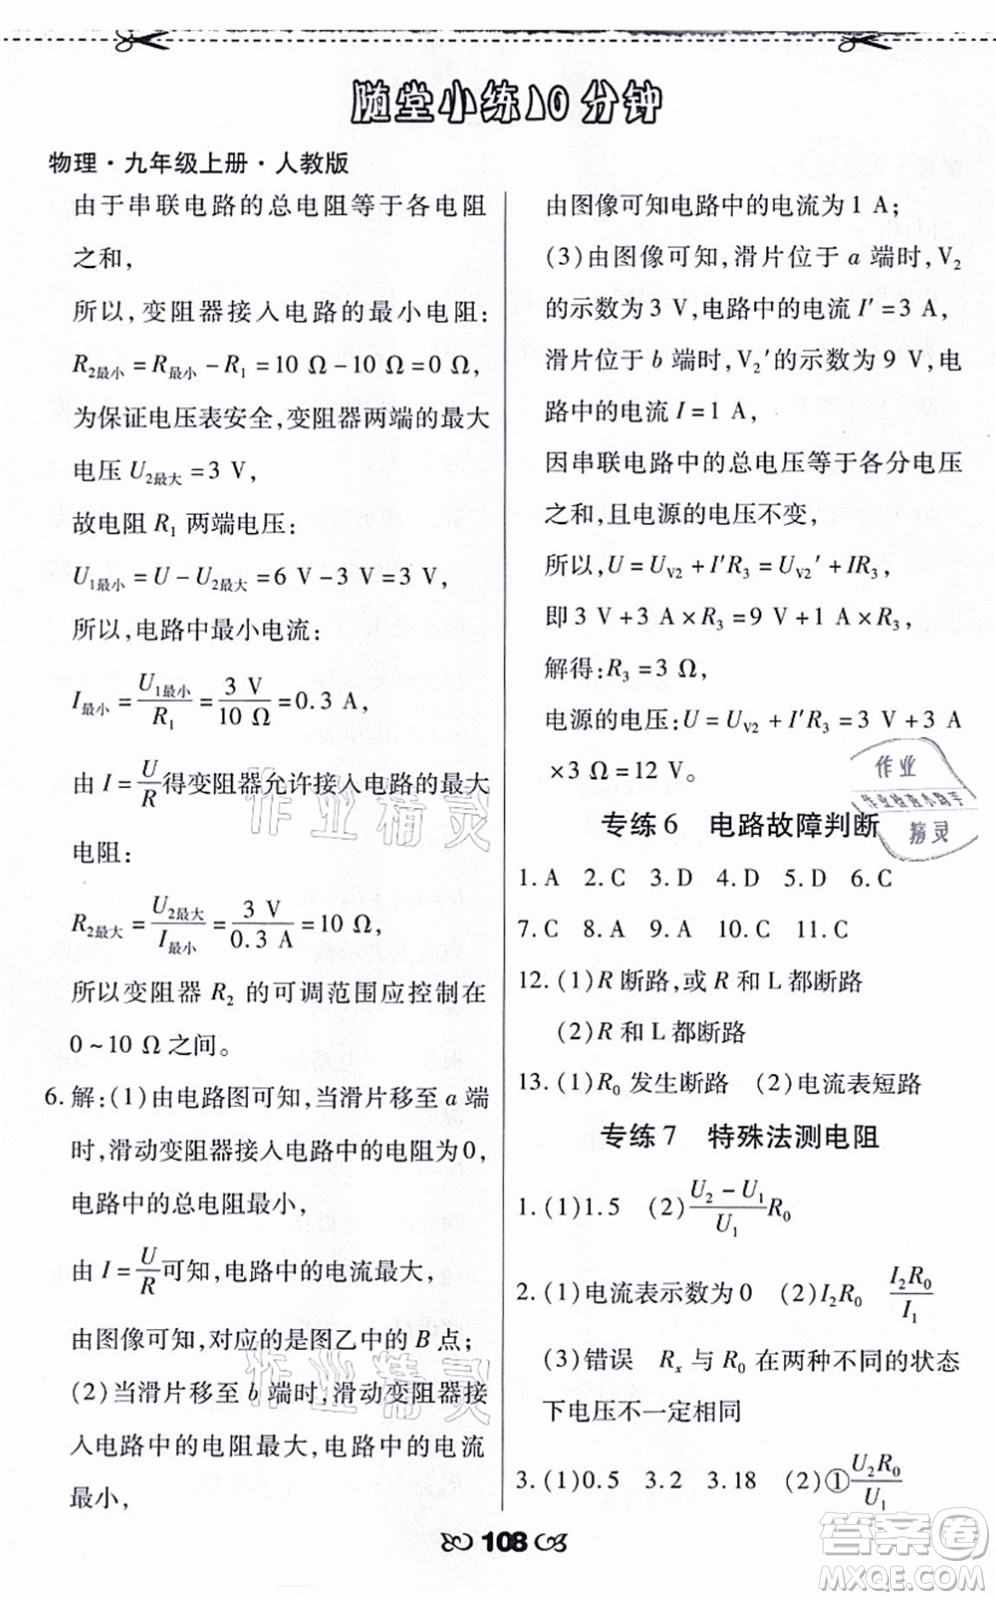 随堂小练10分钟
物理·九年级上册·人教版
由于串联电路的总电阻等于各电阻
之和，
所以，变阻器接入电路的最小电阻：
R2最小 = R最小 - R1 = 10 Ω - 10 Ω = 0 Ω，
为保证电压表安全，变阻器两端的最大
电压 U2最大 = 3 V，
故电阻 R1 两端电压：
U1最小 = U - U2最大 = 6 V - 3 V = 3 V，
所以，电路中最小电流：
I最小 = U1最小/R1 = 3 V/10 Ω = 0.3 A，
由 I = U/R 得变阻器允许接入电路的最大
电阻：
R2最大 = U2最大/I最小 = 3 V/0.3 A = 10 Ω，
所以变阻器 R2 的可调范围应控制在
0~10 Ω 之间。
6. 解：(1)由电路图可知，当滑片移至 a 端
时，滑动变阻器接入电路中的电阻为0，
电路中的总电阻最小，
由 I = U/R 可知，电路中的电流最大，
由图像可知，对应的是图乙中的 B 点；
(2)当滑片移至 b 端时，滑动变阻器接
入电路中的电阻最大，电路中的电流
最小，
由图像可知电路中的电流为 1 A；
(3)由图像可知，滑片位于 a 端时，V2
的示数为 3 V，电路中的电流 I′ = 3 A，
滑片位于 b 端时，V2′的示数为 9 V，电
路中的电流 I = 1 A，
因串联电路中的总电压等于各分电压
之和，且电源的电压不变，
所以，U = UV2 + I′R3 = UV2′ + IR3，
即 3 V + 3 A × R3 = 9 V + 1 A × R3，
解得：R3 = 3 Ω，
电源的电压：U = UV2 + I′R3 = 3 V + 3 A
×3 Ω = 12 V。
专练6 电路故障判断
1. A 2. C 3. D 4. D 5. D 6. C
7. C 8. A 9. A 10. D 11. C
12. (1)R 断路，或 R 和 L 都断路
(2)R 和 L 都断路
13. (1)R0 发生断路 (2)电流表短路
专练7 特殊法测电阻
1. (1)1.5 (2)(U2 - U1)/U1 R0
2. (1)电流表示数为 0 (2)I2R0 I2R0/I1
(3)错误 Rx 与 R0 在两种不同的状态
下电压不一定相同
3. (1)0.5 3.2 3.18 (2)①U2R0/U1
108
作业精灵
作业精灵
作业
作业检查小助手
精灵
答案卷
MXQE.COM